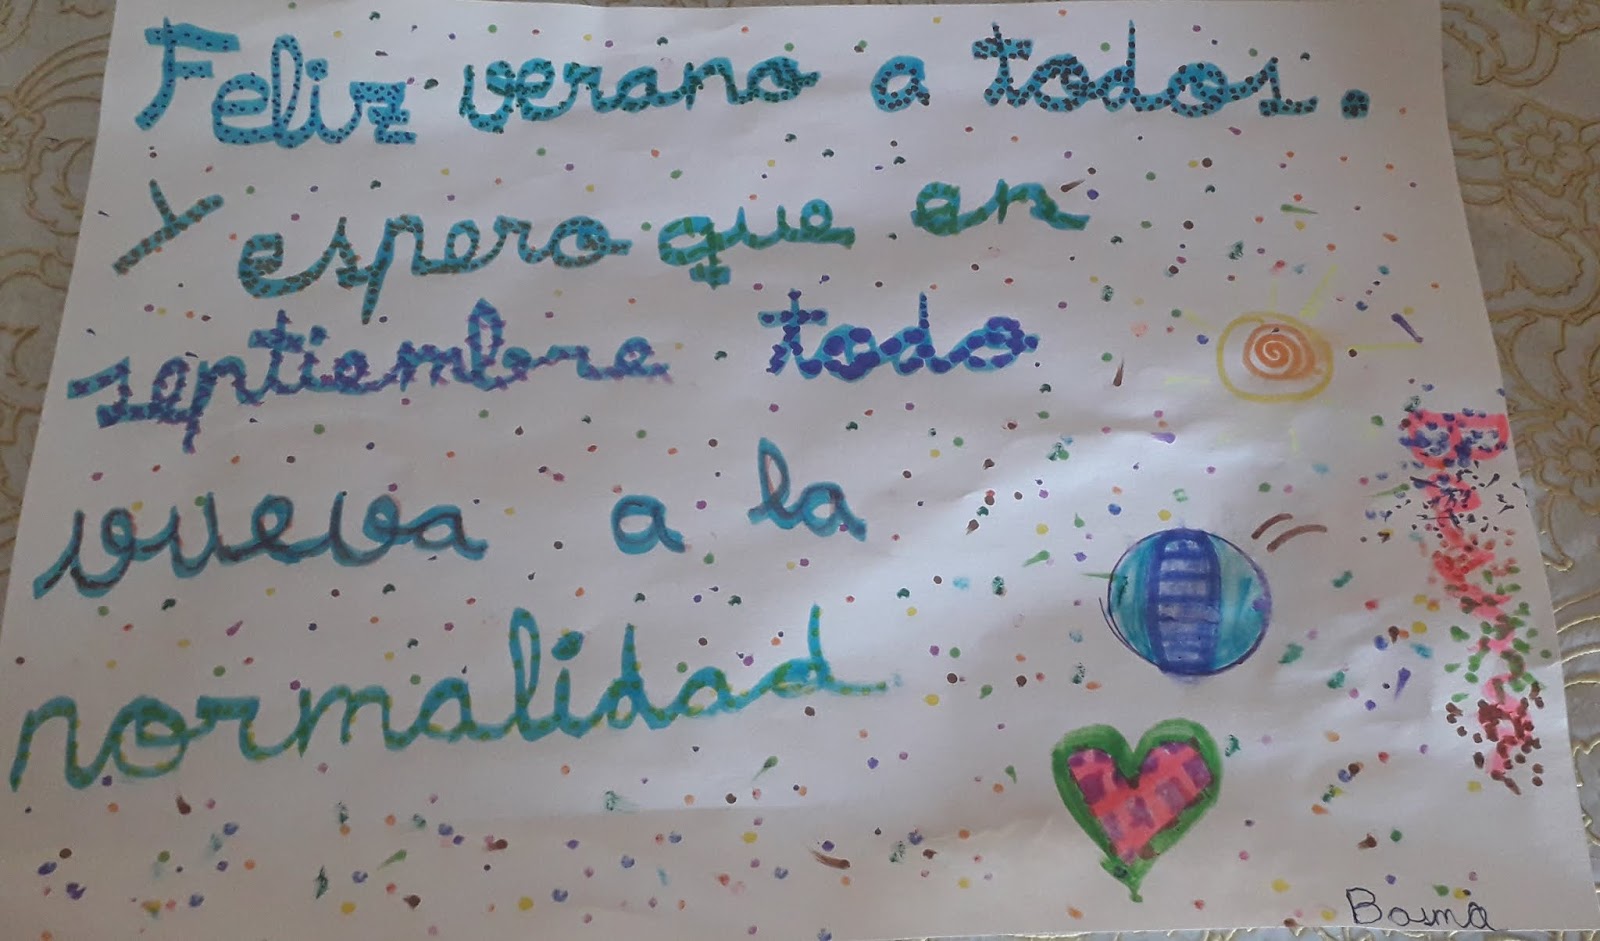 Feliz verano a todos.
Y espero que en
septiembre todo
vueva a la
normalidad
Basma